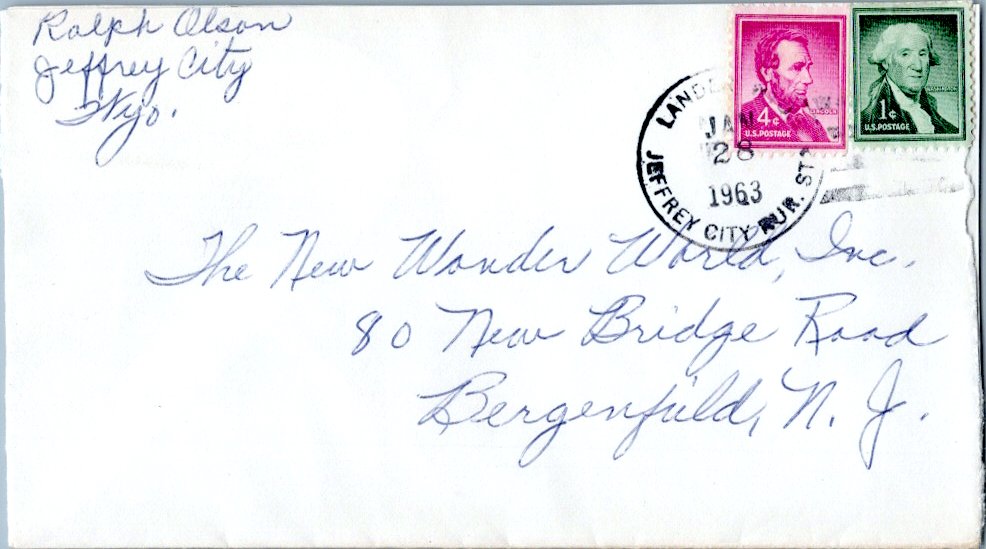 Ralph Olson
Jeffrey City
Wyo.
LANDE
JAN
28
1963
JEFFREY CITY RUR. STA
4¢
LINCOLN
U.S. POSTAGE
1¢
WASHINGTON
U.S. POSTAGE
The New Wonder World, Inc.
80 New Bridge Road
Bergenfield, N. J.